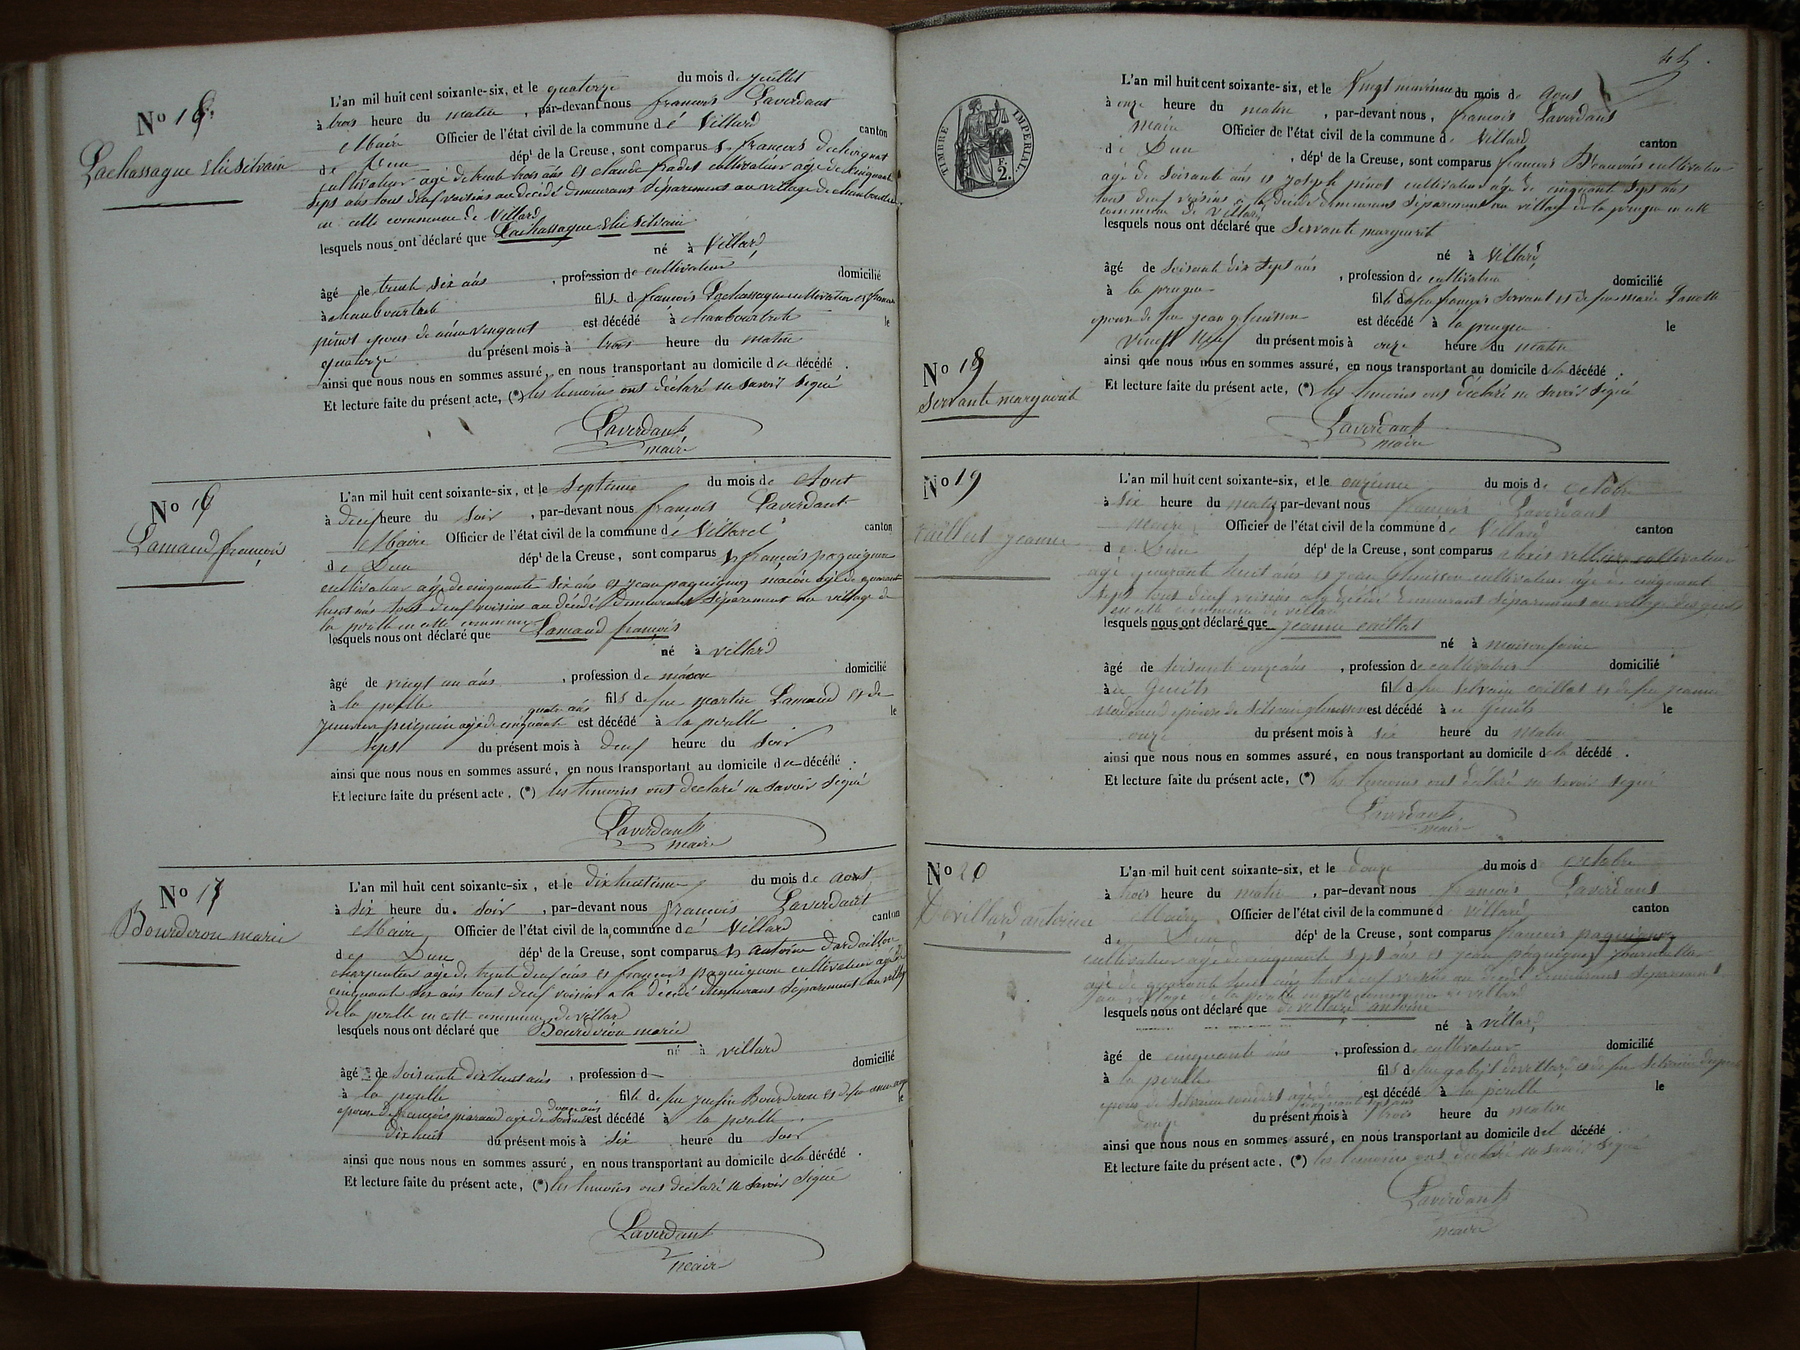 No 15
Lachassagne Elie Silvain
L'an mil huit cent soixante-six, et le quatorze du mois de juillet
à trois heure du matin, par-devant nous françois Laverdant
Maire Officier de l'état civil de la commune dé Villard canton
de Dun dépt de la Creuse, sont comparus
cultivateur agé de trente trois ans et claude cultivateur agé de cinquante
sept ans tous deux voisins au décédé demeurans séparement au village de
en cette commune de Villard
lesquels nous ont déclaré que Lachassagne Elie Silvain
né à Villard
âgé de trente six ans, profession de cultivateur domicilié
à chaubourtrete fils d françois Lachassagne cultivateur et
est décédé à chaubourtrete le
quatorze du présent mois à trois heure du matin
ainsi que nous nous en sommes assuré, en nous transportant au domicile du décédé.
Et lecture faite du présent acte, (*) les temoins ont déclaré ne savoir signé
Laverdant
maire
No 16
Lamaud françois
L'an mil huit cent soixante-six, et le septieme du mois de Aout
à deux heure du soir, par-devant nous françois Laverdant
Maire Officier de l'état civil de la commune de Villard canton
de Dun dépt de la Creuse, sont comparus françois paquignon
cultivateur agé de cinquante six ans et jean paquignon macon agé de quarante
huit ans tous deux voisins au décédé demeurans séparement au village de
la poulle en cette commune
lesquels nous ont déclaré que Lamaud françois
né à villard
âgé de vingt un ans, profession de macon domicilié
à la poulle fils de feu martin Lamaud et de
agé de cinquante quatre ans est décédé à la poulle le
sept du présent mois à deux heure du soir
ainsi que nous nous en sommes assuré, en nous transportant au domicile du décédé.
Et lecture faite du présent acte, (*) les temoins ont declaré ne savoir signé
Laverdant
maire
No 17
Bourderou marie
L'an mil huit cent soixante-six, et le dixhuitieme du mois de aout
à six heure du soir, par-devant nous françois Laverdant
Maire Officier de l'état civil de la commune dé Villard canton
de Dun dépt de la Creuse, sont comparus antoine Dardaillon
charpentier agé de trente deux ans et françois paquignon cultivateur agé de
cinquante six ans tout deux voisins a la décédé demeurans séparement au village
de la poulle en cette commune de villar
lesquels nous ont déclaré que Bourderou marie
né à villard
âgé de soixante dix huit ans, profession d
domicilié
à la poulle fille de feu Bourderou et de feu
epouse de françois agé de est décédé à la poulle le
dix huit du présent mois à six heure du soir
ainsi que nous nous en sommes assuré, en nous transportant au domicile de la décédé.
Et lecture faite du présent acte, (*) les temoins ont declaré ne savoir signé
Laverdant
maire
TIMBRE IMPERIAL.
F.
2.
No 18
Servante marguerit
L'an mil huit cent soixante-six, et le Vingt du mois de Aout
à onze heure du matin, par-devant nous, françois Laverdant
maire Officier de l'état civil de la commune de Villard canton
de Dun, dépt de la Creuse, sont comparus françois Beauvais cultivateur
agé de soixante ans et joseph pinot cultivateur agé de cinquante sept ans
tous deux voisins a la décédé demeurans séparement au village de la prugne en cette
commune de Villard
lesquels nous ont déclaré que Servante marguerit
né à Villard
âgé de soixante dix sept ans, profession de cultivatrice domicilié
à la prugne fille de feu françois Servant et de feu marie
epouse de feu jean gluisson est décédé à la prugne le
vingt neuf du présent mois à onze heure du matin
ainsi que nous nous en sommes assuré, en nous transportant au domicile de la décédé.
Et lecture faite du présent acte, (*) les temoins ont déclaré ne savoir signé
Laverdant
maire
No 19
Caillot Jeanne
L'an mil huit cent soixante-six, et le onzieme du mois de octobre
à six heure du matin par-devant nous françois Laverdant
maire Officier de l'état civil de la commune de Villard canton
de Dun dépt de la Creuse, sont comparus cultivateur
agé quarante huit ans et jean gluisson cultivateur agé de cinquante
sept tous deux voisins a la décédé demeurant séparement au village
en cette commune de villard
lesquels nous ont déclaré que jeanne caillot
né à maisonfaine
âgé de soixante onze ans, profession de cultivatrice domicilié
à fille d feu Silvain caillot et de feu jeanne
epouse de Silvain gluisson est décédé à le
onze du présent mois à six heure du matin
ainsi que nous nous en sommes assuré, en nous transportant au domicile de la décédé.
Et lecture faite du présent acte, (*) les temoins ont déclaré ne savoir signé
Laverdant
maire
No 20
Devillard antoine
L'an mil huit cent soixante-six, et le douze du mois d octobre
à trois heure du matin, par-devant nous françois Laverdant
Maire Officier de l'état civil de la commune d villard canton
de Dun dépt de la Creuse, sont comparus françois paquignon
cultivateur agé de cinquante sept ans et jean paquignon
agé de quarante huit ans tout deux voisins au décédé demeurant séparement
au village de la poulle en cette commune de villard
lesquels nous ont déclaré que devillard antoine
né à villard
âgé de cinquante ans, profession de cultivateur domicilié
à la poulle fils de
est décédé à la poulle le
douze du présent mois à trois heure du matin
ainsi que nous nous en sommes assuré, en nous transportant au domicile de décédé.
Et lecture faite du présent acte, (*) les temoins ont declaré ne savoir signé
Laverdant
maire